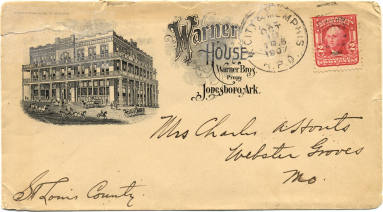 Warner
HOUSE
Warner Bros.
Props
Jonesboro, Ark.
MEMPHIS
1907
R.P.O.
2
2
Mrs Charles A Houts
Webster Groves
Mo.
St Louis County.